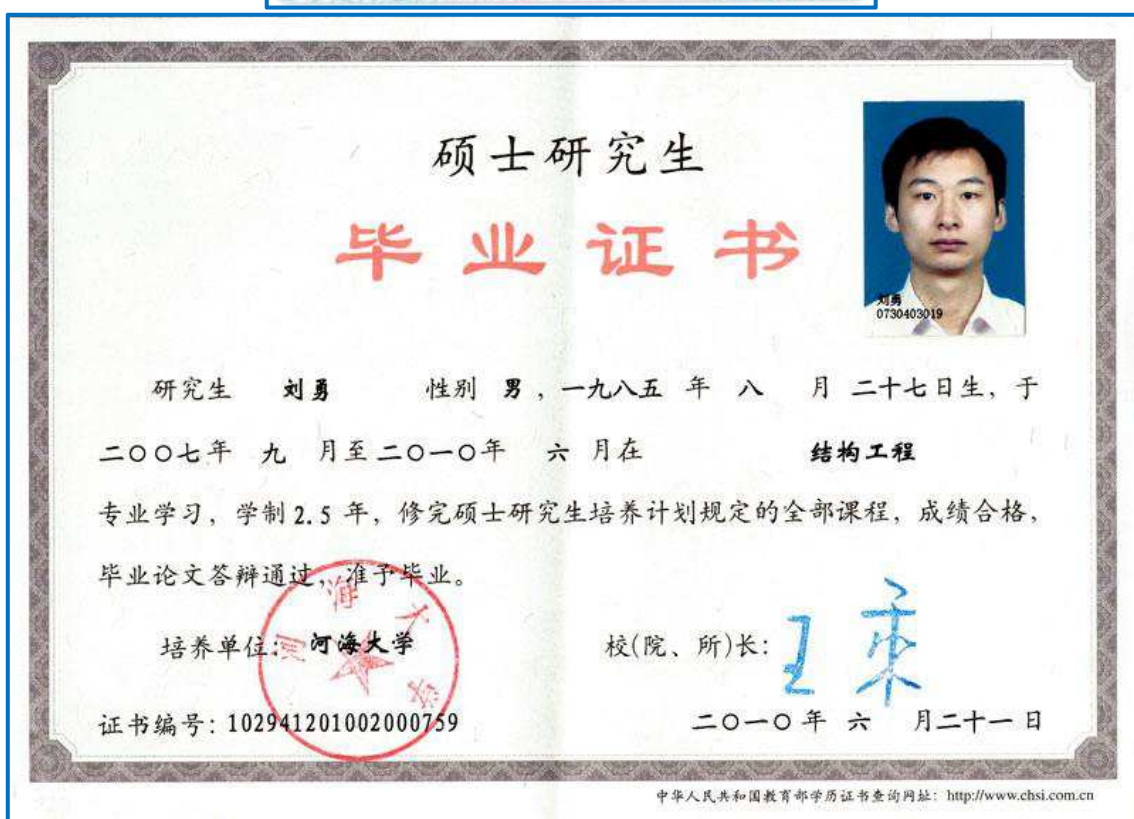 硕士研究生
毕业证书
刘勇
0730403019
研究生 刘勇 性别 男，一九八五 年 八 月 二十七日生，于
二〇〇七年 九 月至二〇一〇年 六 月在 结构工程
专业学习，学制2.5 年，修完硕士研究生培养计划规定的全部课程，成绩合格，
毕业论文答辩通过，准予毕业。
河海大学
培养单位：河海大学 校(院、所)长：王乘
证书编号：102941201002000759 二〇一〇年 六 月二十一日
中华人民共和国教育部学历证书查询网址：http://www.chsi.com.cn